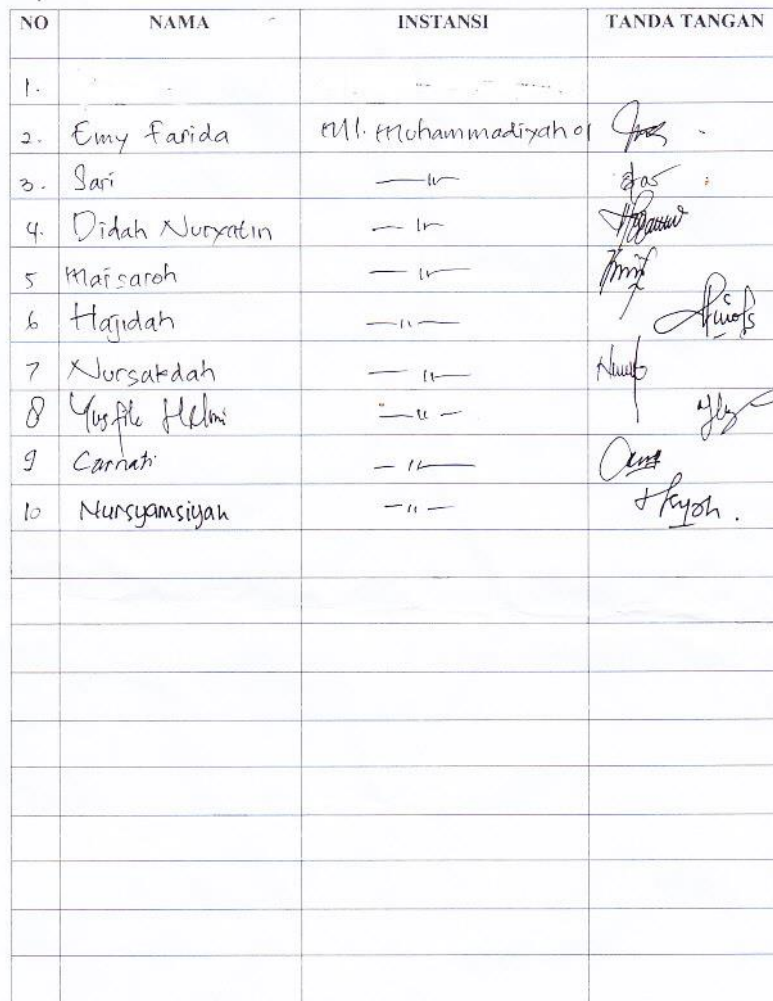 NO NAMA INSTANSI TANDA TANGAN
1.
2. Emy Farida MI. Muhammadiyah 01
3. Sari —〃—
4. Didah Nuryatin —〃—
5 Maisaroh —〃—
6 Hajidah —〃—
7 Nursakdah —〃—
8 Helmi —〃—
9 Carnati —〃—
10 Nursyamsiyah —〃—